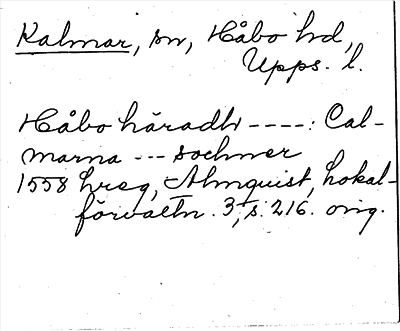 Kalmar, sn, Håbo hd,
Upps. l.
Håbo häradh ----: Cal-
marna --- sochner
1558 hreg, Almquist, Lokal-
förvaltn. 3, s. 216. orig.